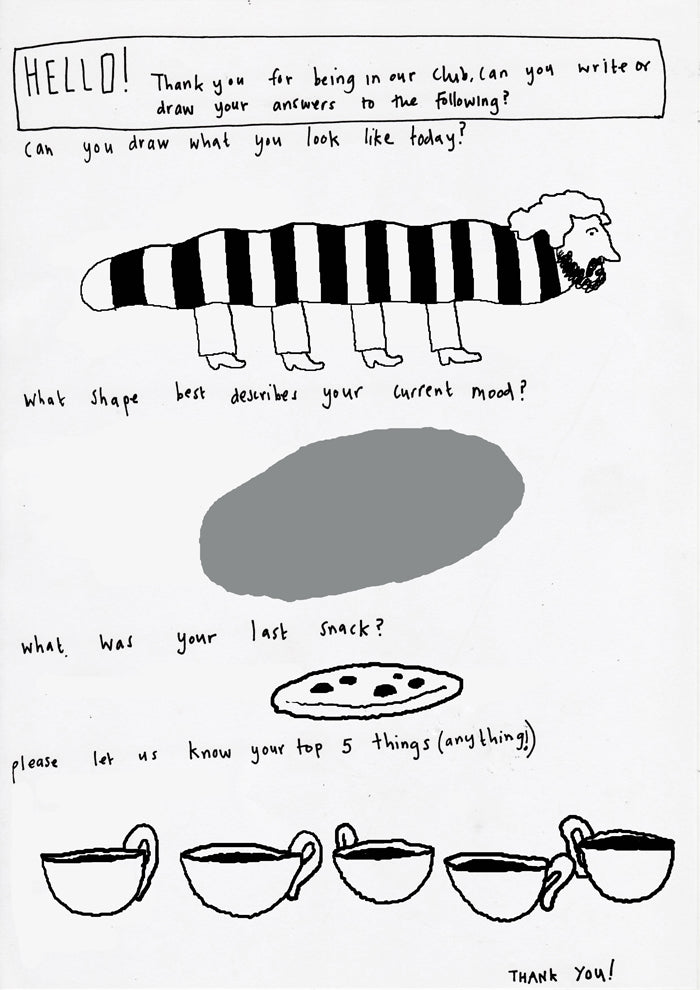 HELLO! Thank you for being in our club, can you write or
draw your answers to the following?
can you draw what you look like today?
what shape best describes your current mood?
what was your last snack?
please let us know your top 5 things (anything!)
THANK YOU!